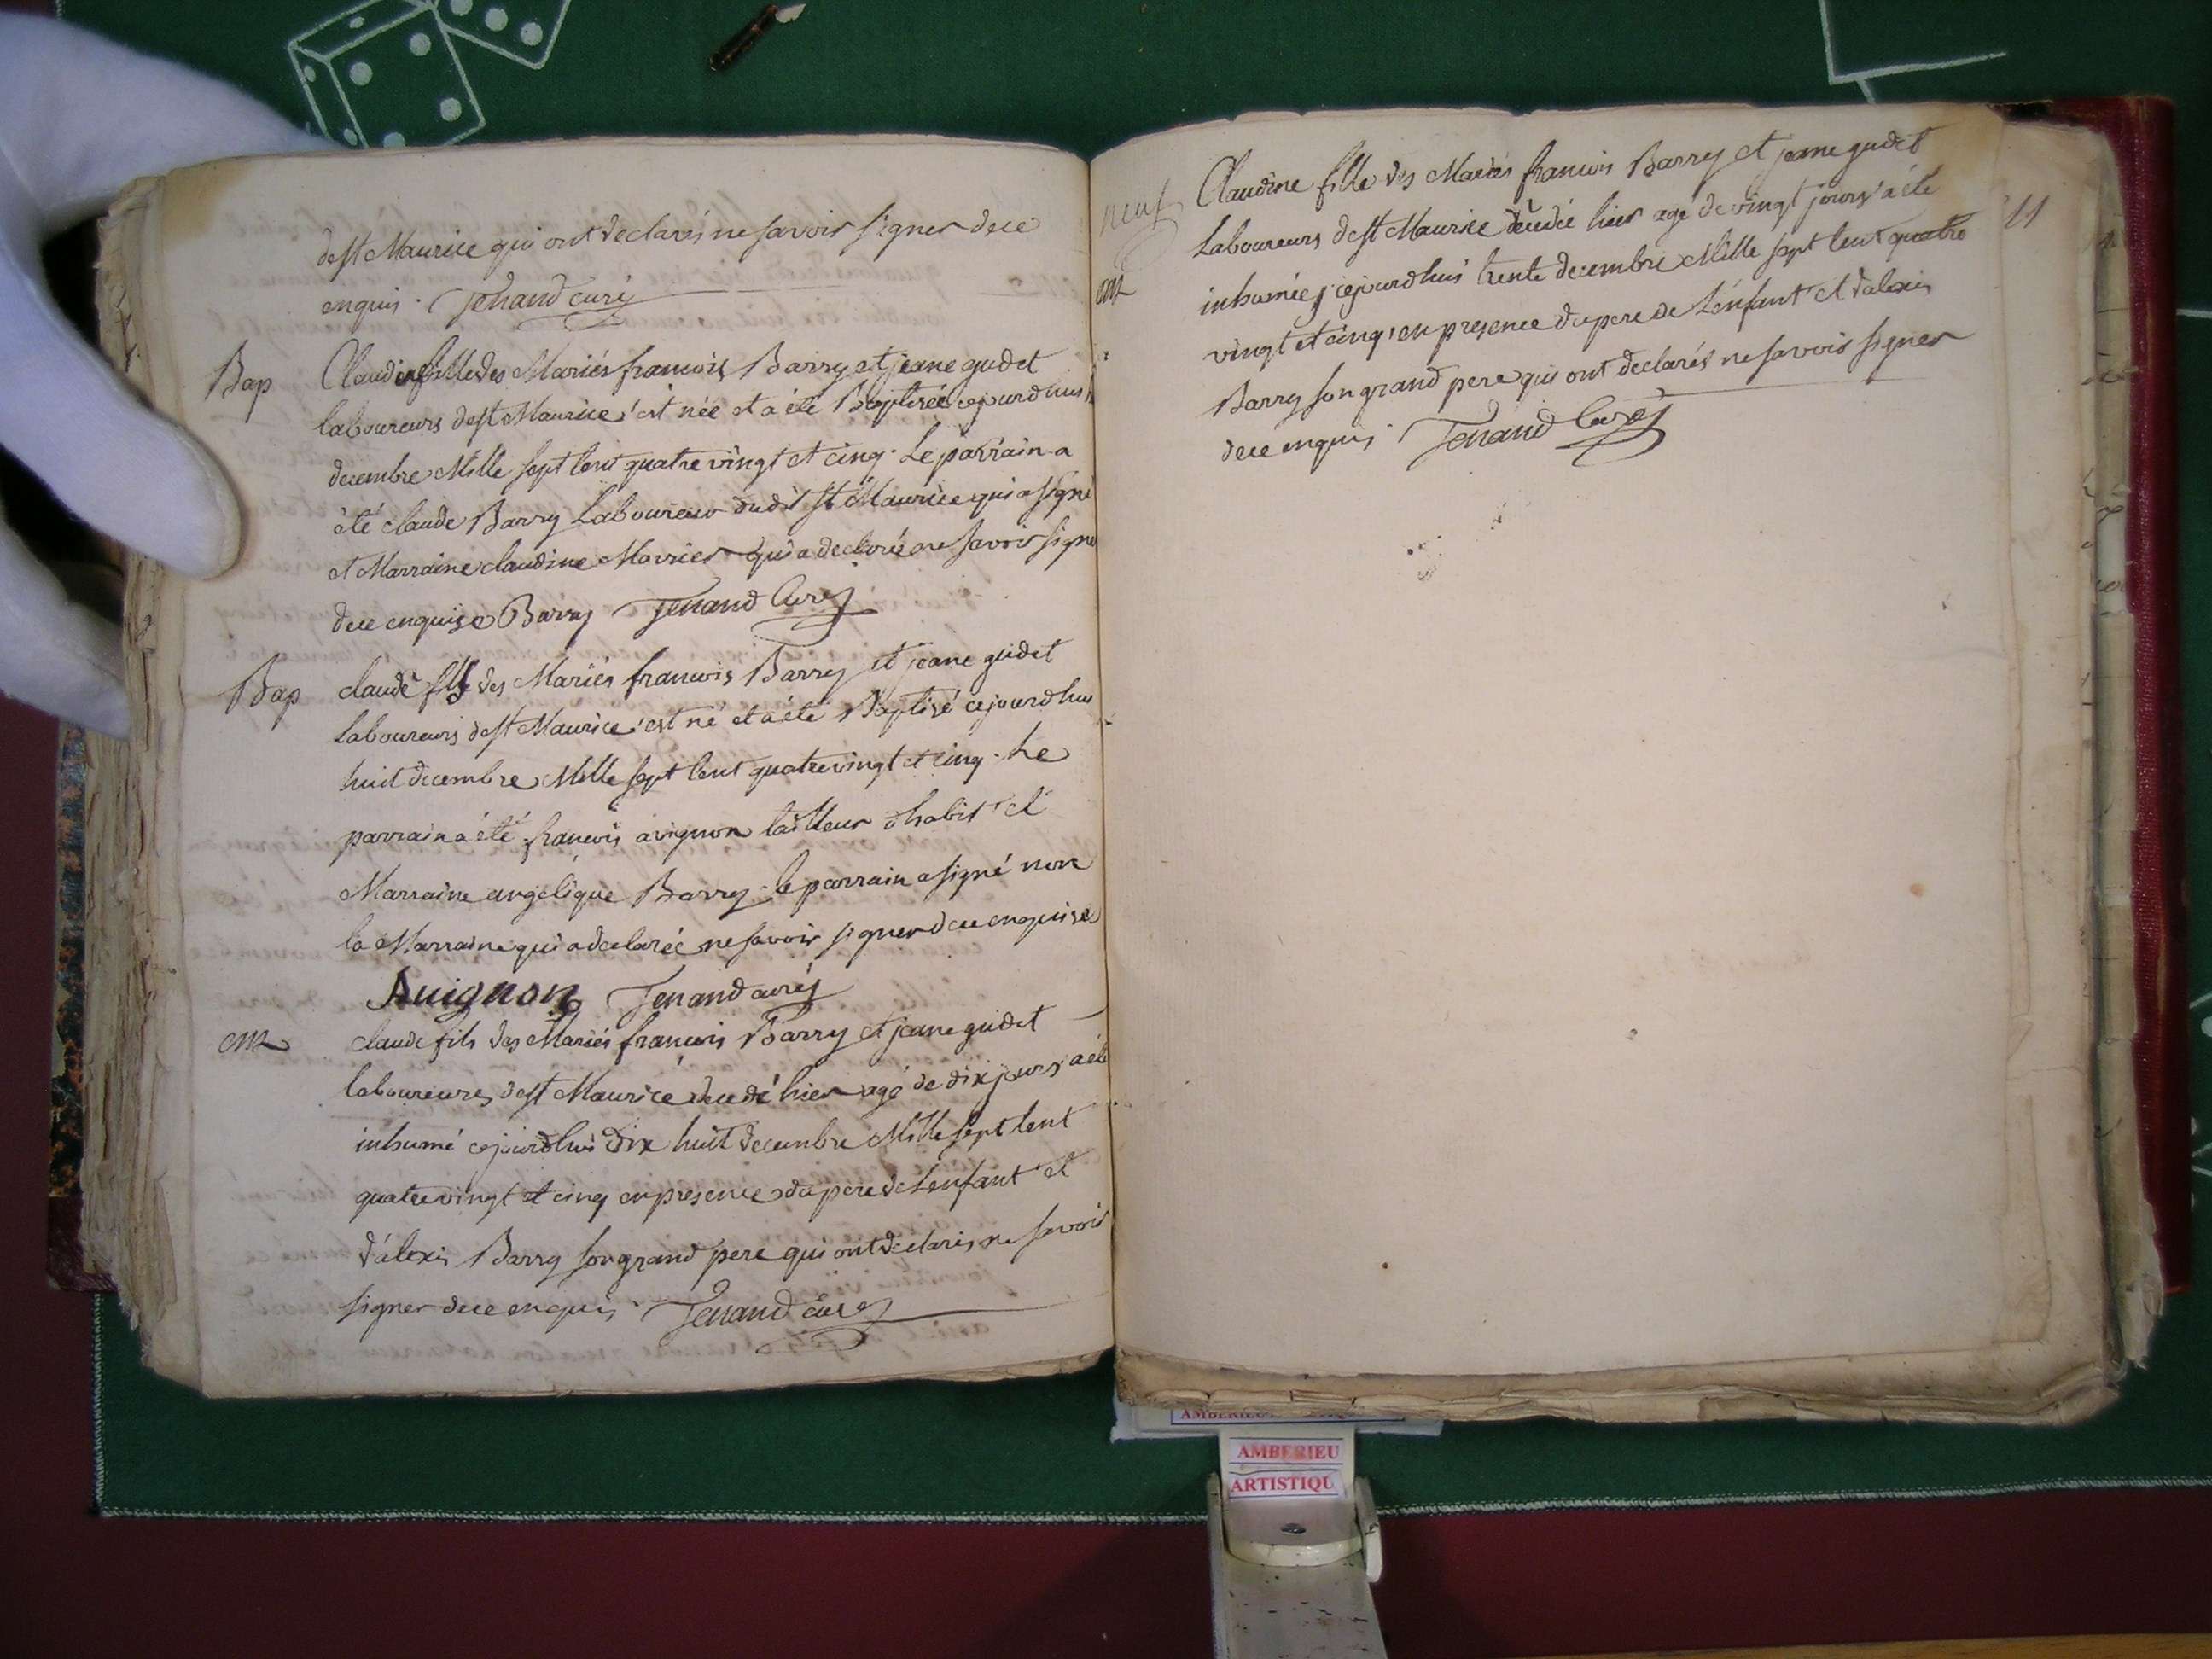 de st Maurice qui ont declarés ne savoir signer de ce
enquis. Tenand curé
Bap
Claudine fille des Mariés francois Barry et jeane gudet
laboureurs de st Maurice est née et a été Baptisée cejourdhui
decembre Mille sept cent quatre vingt et cinq. Le parrain a
été claude Barry Laboureur dudit st Maurice qui a signé
et Marraine claudine qui a declarée ne savoir signe
de ce enquise Barry Tenand Curé
Bap
claude fils des Mariés francois Barry et jeane guidet
Laboureurs de st Maurice est né et a été Baptisé cejourdhui
huit decembre Mille sept cent quatre vingt et cinq. Le
parrain a été francois avignon tailleur d habit et
Marraine angelique Barry. le parrain a signé non
la Marraine qui a declarée ne savoir signer de ce enquise
Auignon Tenand curé
claude fils des Mariés francois Barry et jeane guidet
laboureurs de st Maurice decedé hier agé de dix jours a été
inhumé cejourdhui dix huit decembre Mille sept cent
quatre vingt et cinq en presence du pere de Lenfant et
d'alexis Barry son grand pere qui ont declarés ne savoir
signer de ce enquis. Tenand curé
neuf
Claudine fille des Mariés francois Barry et jeane gudet
Laboureurs de st Maurice decedée hier agé de vingt jours a été
inhumée cejourdhui trente decembre Mille sept cent quatre
vingt et cinq en presence du pere de Lenfant et d'alexis
Barry son grand pere qui ont declarés ne savoir signer
de ce enquis. Tenand Curé
11
AMBERIEU
ARTISTIQU